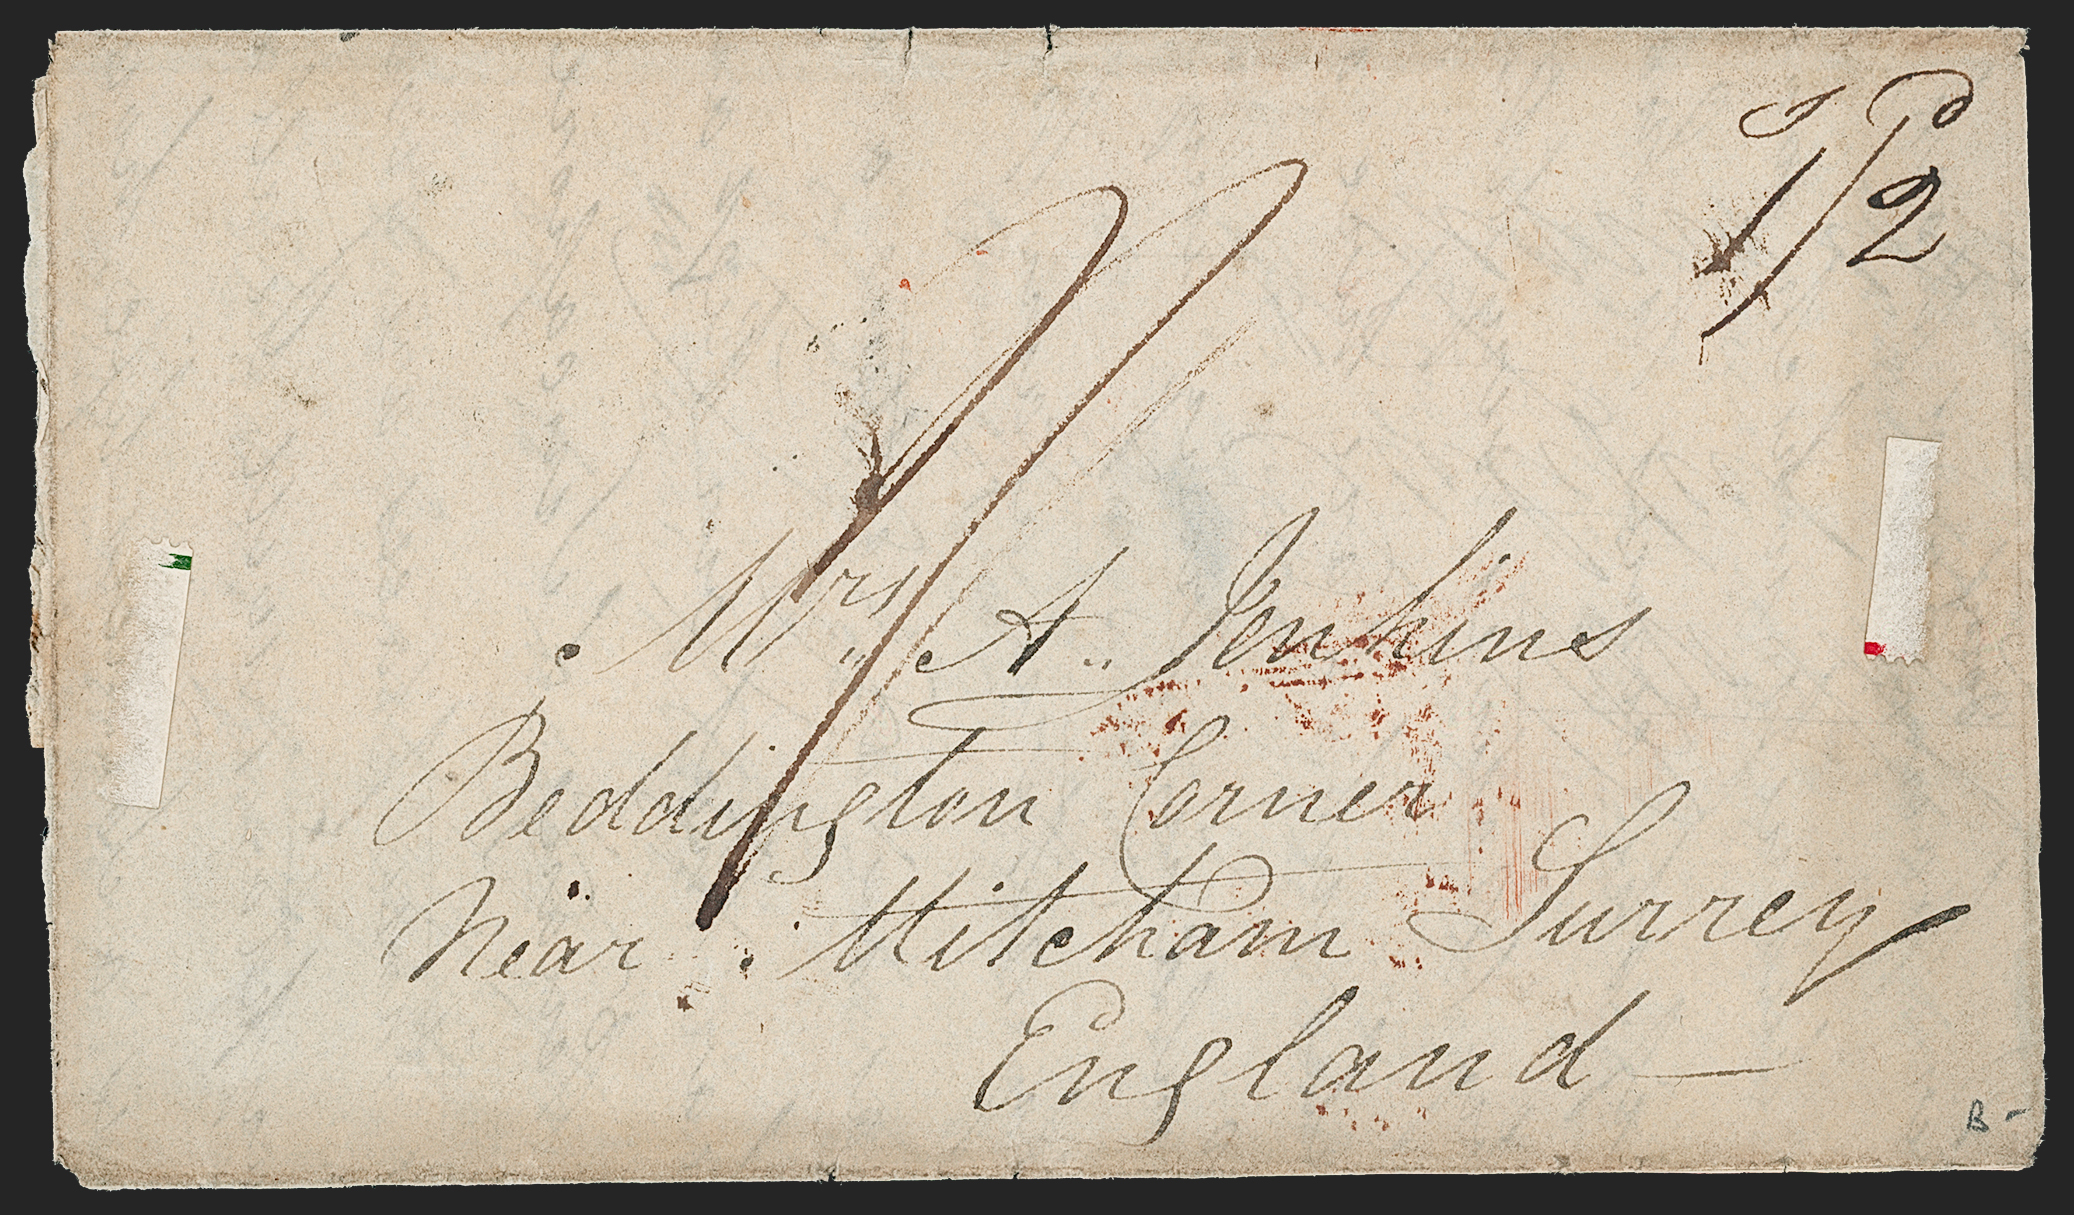 1/2
Mrs. A. Jenkins
Beddington Corner
Near Mitcham Surrey
England
B -